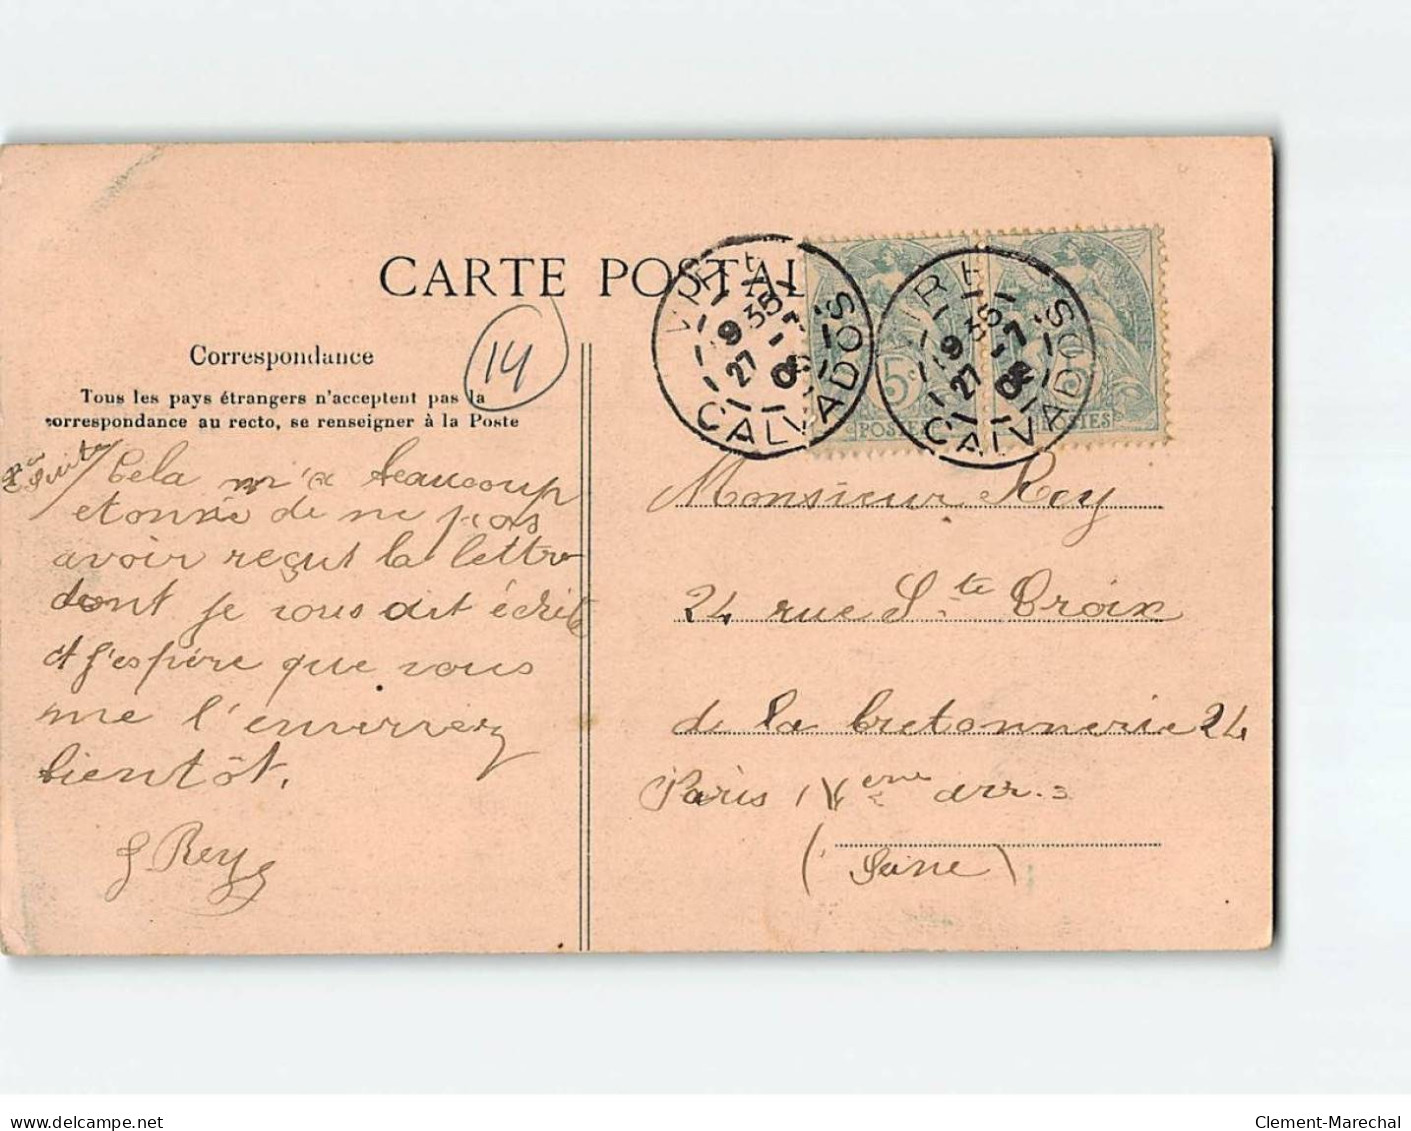 CARTE POSTAL
VIRE
9 35
27 -7
08
CALVADOS
VIRE
9 35
27 -7
08
CALVADOS
5c
POSTES
5c
POSTES
14
Correspondance
Tous les pays étrangers n'acceptent pas la
correspondance au recto, se renseigner à la Poste
Suite
Cela m'a beaucoup
etonné de ne pas
avoir reçut la lettre
dont je vous ait écrite
et j'espère que vous
me l'enverrez
bientôt.
J Rey
Monsieur Rey
24 rue Ste Croix
de la bretonnerie 24
Paris IVeme arr.
(Seine)
delcampe.net
Clement-Marechal